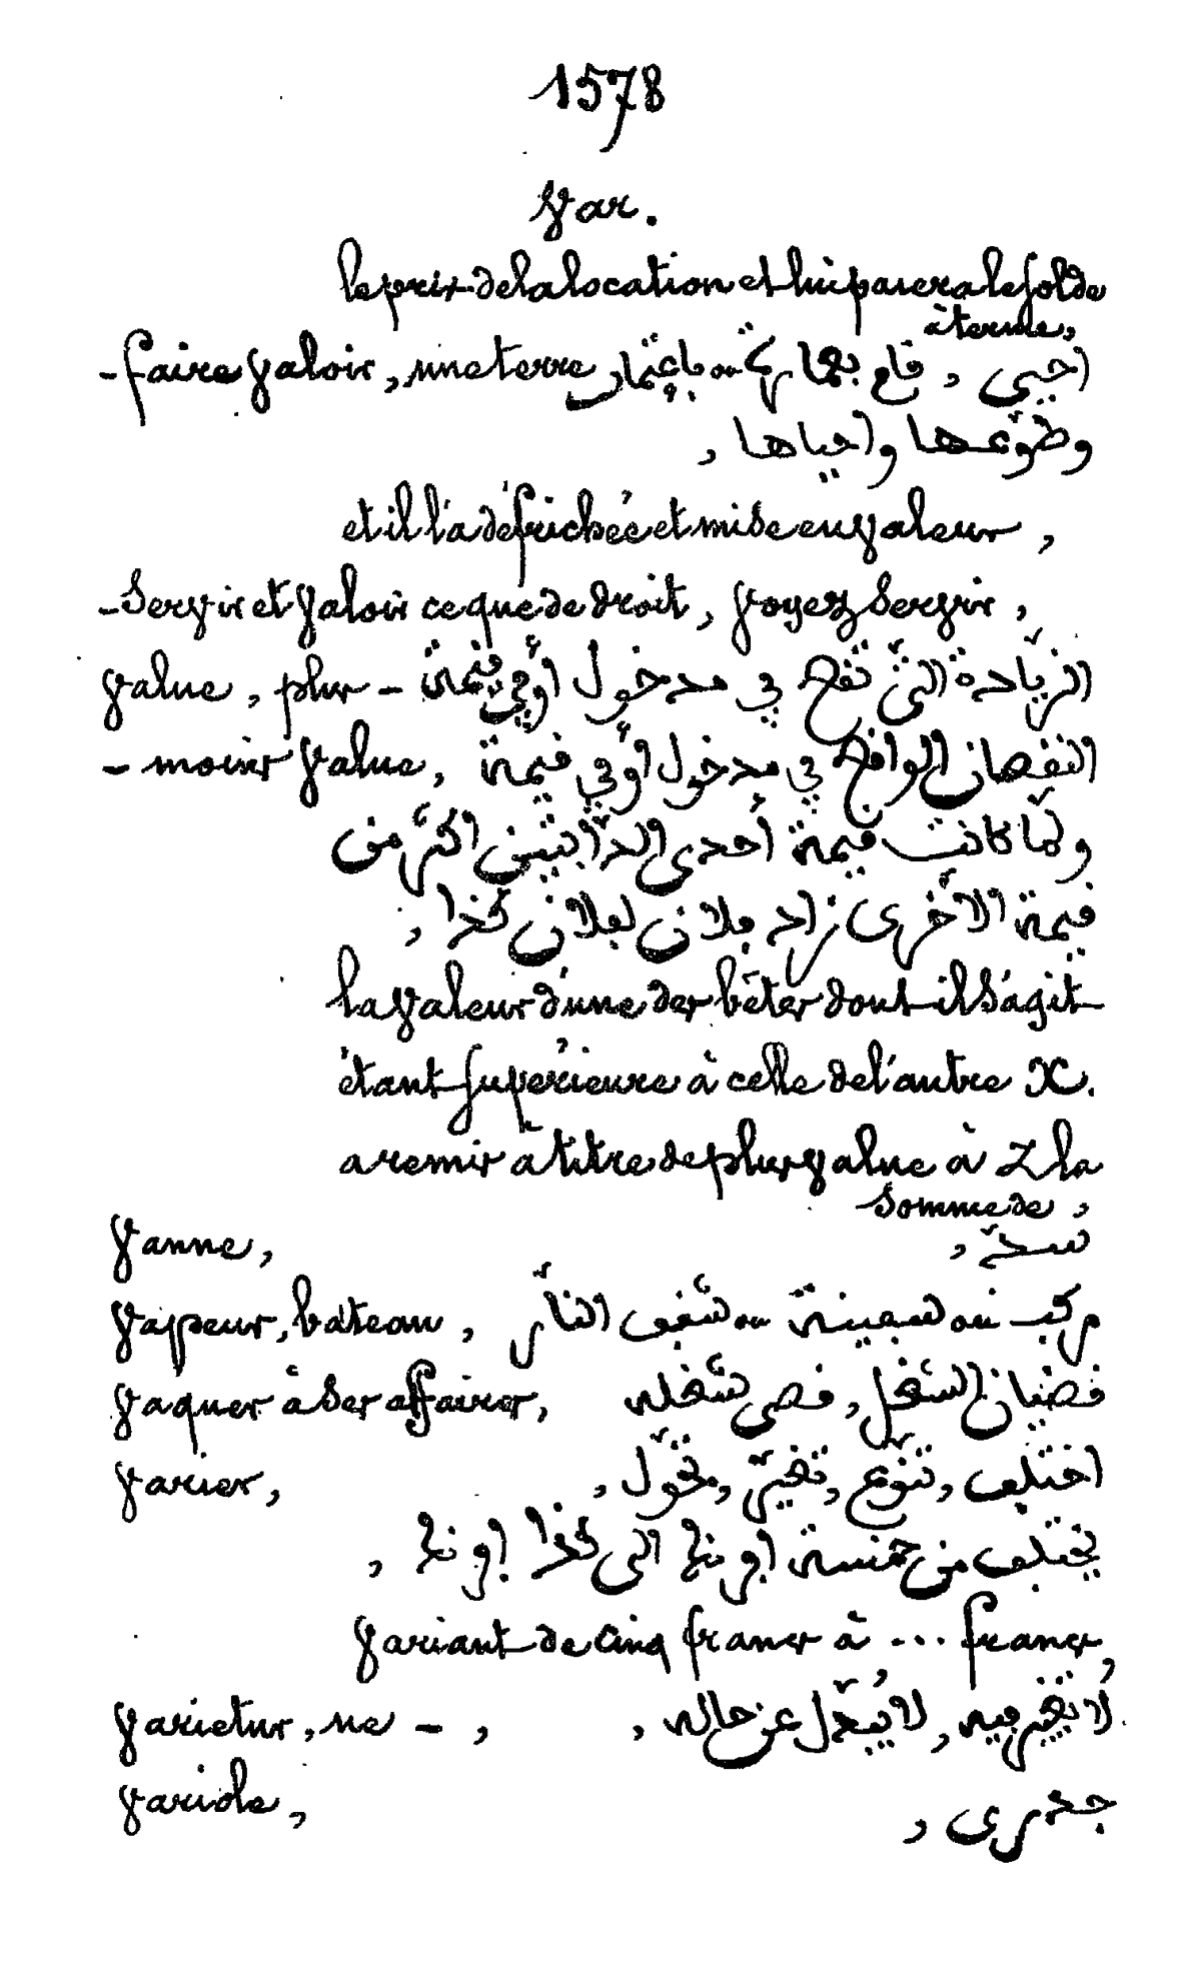 1578
Var.
le prix de la location et lui paiera le solde
à terme,
- faire valoir, une terre احيى , قام بعمارة ou باعتمار
وطوّعها واحياها ,
et il l'a défrichée et mise en valeur ,
- Servir et valoir ce que de droit, voyez Servir ,
value, plus - الزيادة التى تقع في مدخول أو في قيمة
- moins value, النقصان الواقع في مدخول أو في قيمة
ولمّا كانت قيمة أحدى الدّابتين اكثر من
قيمة الأخرى زاد فلان لفلان كذا ,
la valeur d'une des bêtes dont il s'agit
étant supérieure à celle de l'autre X.
a remis à titre de plus value à Z la
somme de ,
Vanne, سدّ ,
Vapeur, bateau , مركب ou سفينة ou شقف النار
Vaquer à ses affaires, قضيان الشغل , قضى شغله
Varier, اختلف , تنوّع , تغيّر , تحوّل ,
يختلف من خمسة افرنك الى كذا افرنك ,
Variant de cinq francs à ... francs,
Varietur, ne - , لا تغير فيه , لا يبدّل عن حاله ,
Variole, جدرى ,